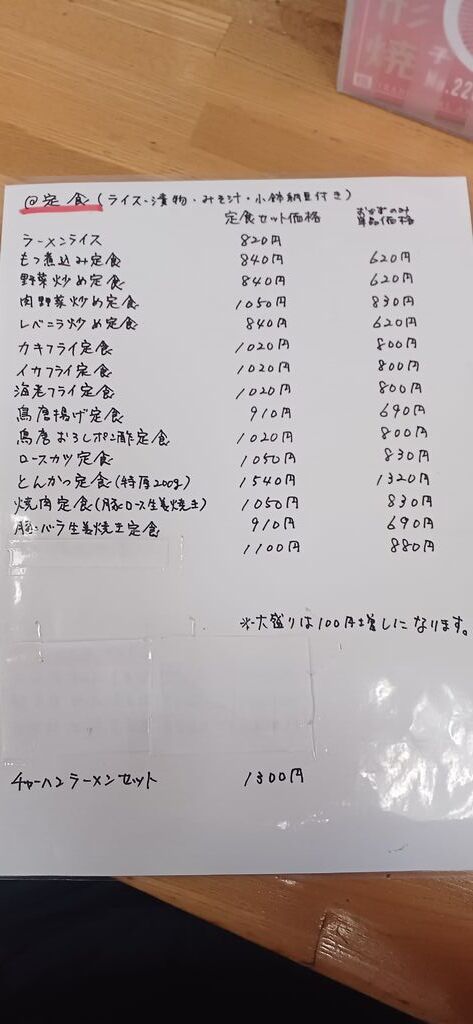 焼 子
No.22
@定食(ライス・漬物・みそ汁・小鉢納豆付き)
定食セット価格 おかずのみ単品価格
ラーメンライス 820円
もつ煮込み定食 840円 620円
野菜炒め定食 840円 620円
肉野菜炒め定食 1050円 830円
レバニラ炒め定食 840円 620円
カキフライ定食 1020円 800円
イカフライ定食 1020円 800円
海老フライ定食 1020円 800円
鳥唐揚げ定食 910円 690円
鳥唐おろしポン酢定食 1020円 800円
ロースカツ定食 1050円 830円
とんかつ定食(特厚200g) 1540円 1320円
焼肉定食(豚ロース生姜焼き) 1050円 830円
豚バラ生姜焼き定食 910円 690円
1100円 880円
※大盛りは100円増しになります。
チャーハンラーメンセット 1300円